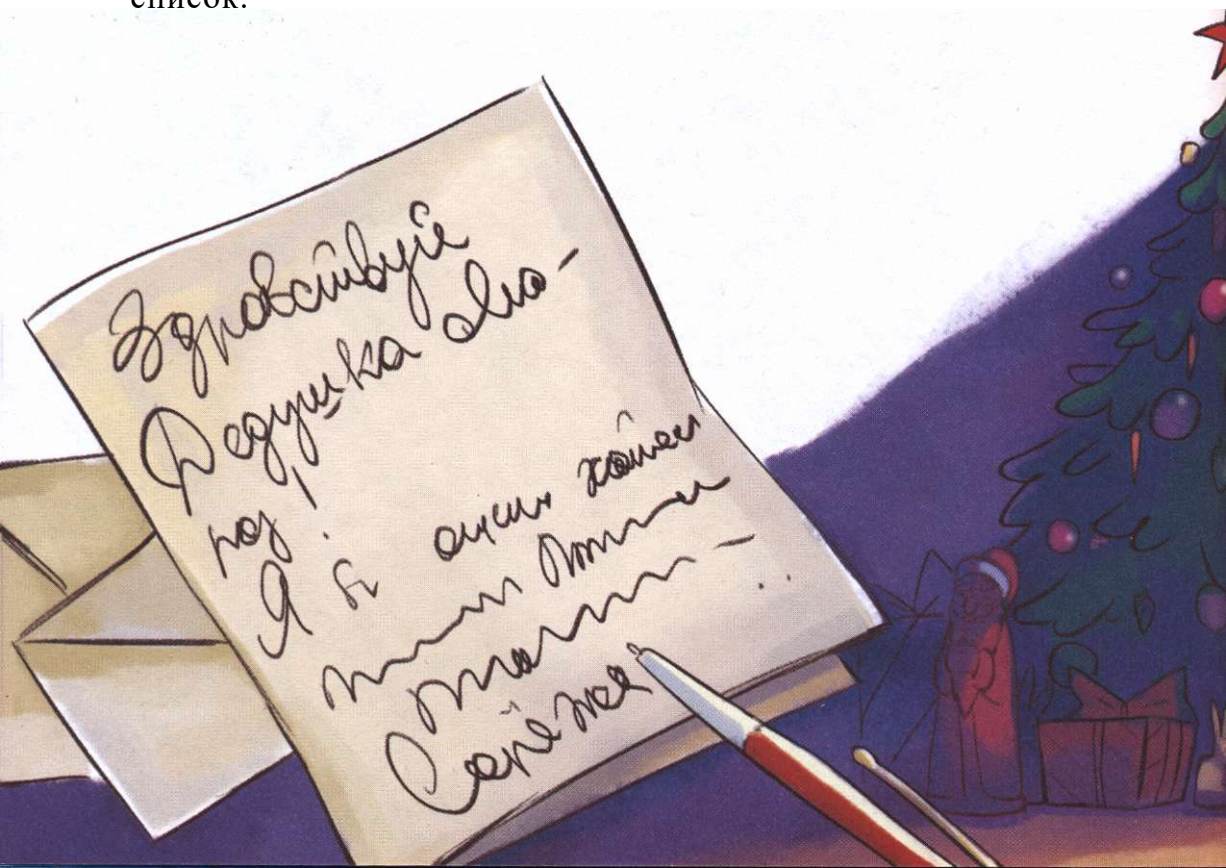 список.
Здравствуй
Дедушка Мо-
роз!
Я б очень хотел
Серёжа